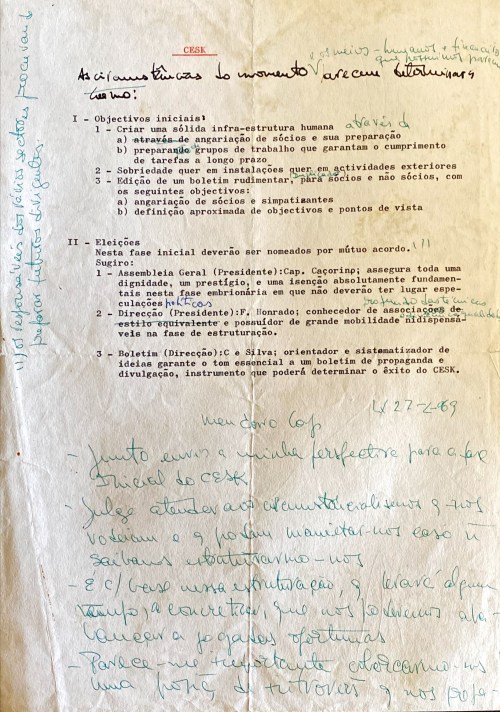 CESK
os meios - humanos e financeiros
que possuimos parecem
As circunstâncias do momento parecem determinar o
mesmo:
I - Objectivos iniciais:
1 - Criar uma sólida infra-estrutura humana através de
a) através de angariação de sócios e sua preparação
b) preparando grupos de trabalho que garantam o cumprimento
de tarefas a longo prazo
2 - Sobriedade quer em instalações quer em actividades exteriores
3 - Edição de um boletim rudimentar, para sócios e não sócios, com
os seguintes objectivos:
a) angariação de sócios e simpatizantes
b) definição aproximada de objectivos e pontos de vista
II - Eleições
Nesta fase inicial deverão ser nomeados por mútuo acordo. 1)
Sugiro:
1 - Assembleia Geral (Presidente):Cap. Caçorino; assegura toda uma
dignidade, um prestígio, e uma isenção absolutamente fundamen-
tais nesta fase embrionária em que não deverão ter lugar espe-
culações políticas
2 - Direcção (Presidente):F. Honrado; conhecedor de associações de
estilo equivalente e possuidor de grande mobilidade nidispensá-
veis na fase de estruturação.
3 - Boletim (Direcção):C e Silva; orientador e sistematizador de
ideias garante o tom essencial a um boletim de propaganda e
divulgação, instrumento que poderá determinar o êxito do CESK.
1) os responsáveis dos vários sectores procurarão
preparar futuros dirigentes
Lx 27-2-69
Meu caro Cap
- Junto envio a minha perspectiva para a fase
Inicial do CESK
- Julgo atender aos circunstancialismos q nos
rodeiam e q podem manietar-nos caso ñ
saibamos estruturarmo-nos
- E c/ base nessa estruturação, q levará algum
tempo, a concretizar, que nos poderemos aba-
lançar a jogadas oportunas
- Parece-me importante
uma q nos